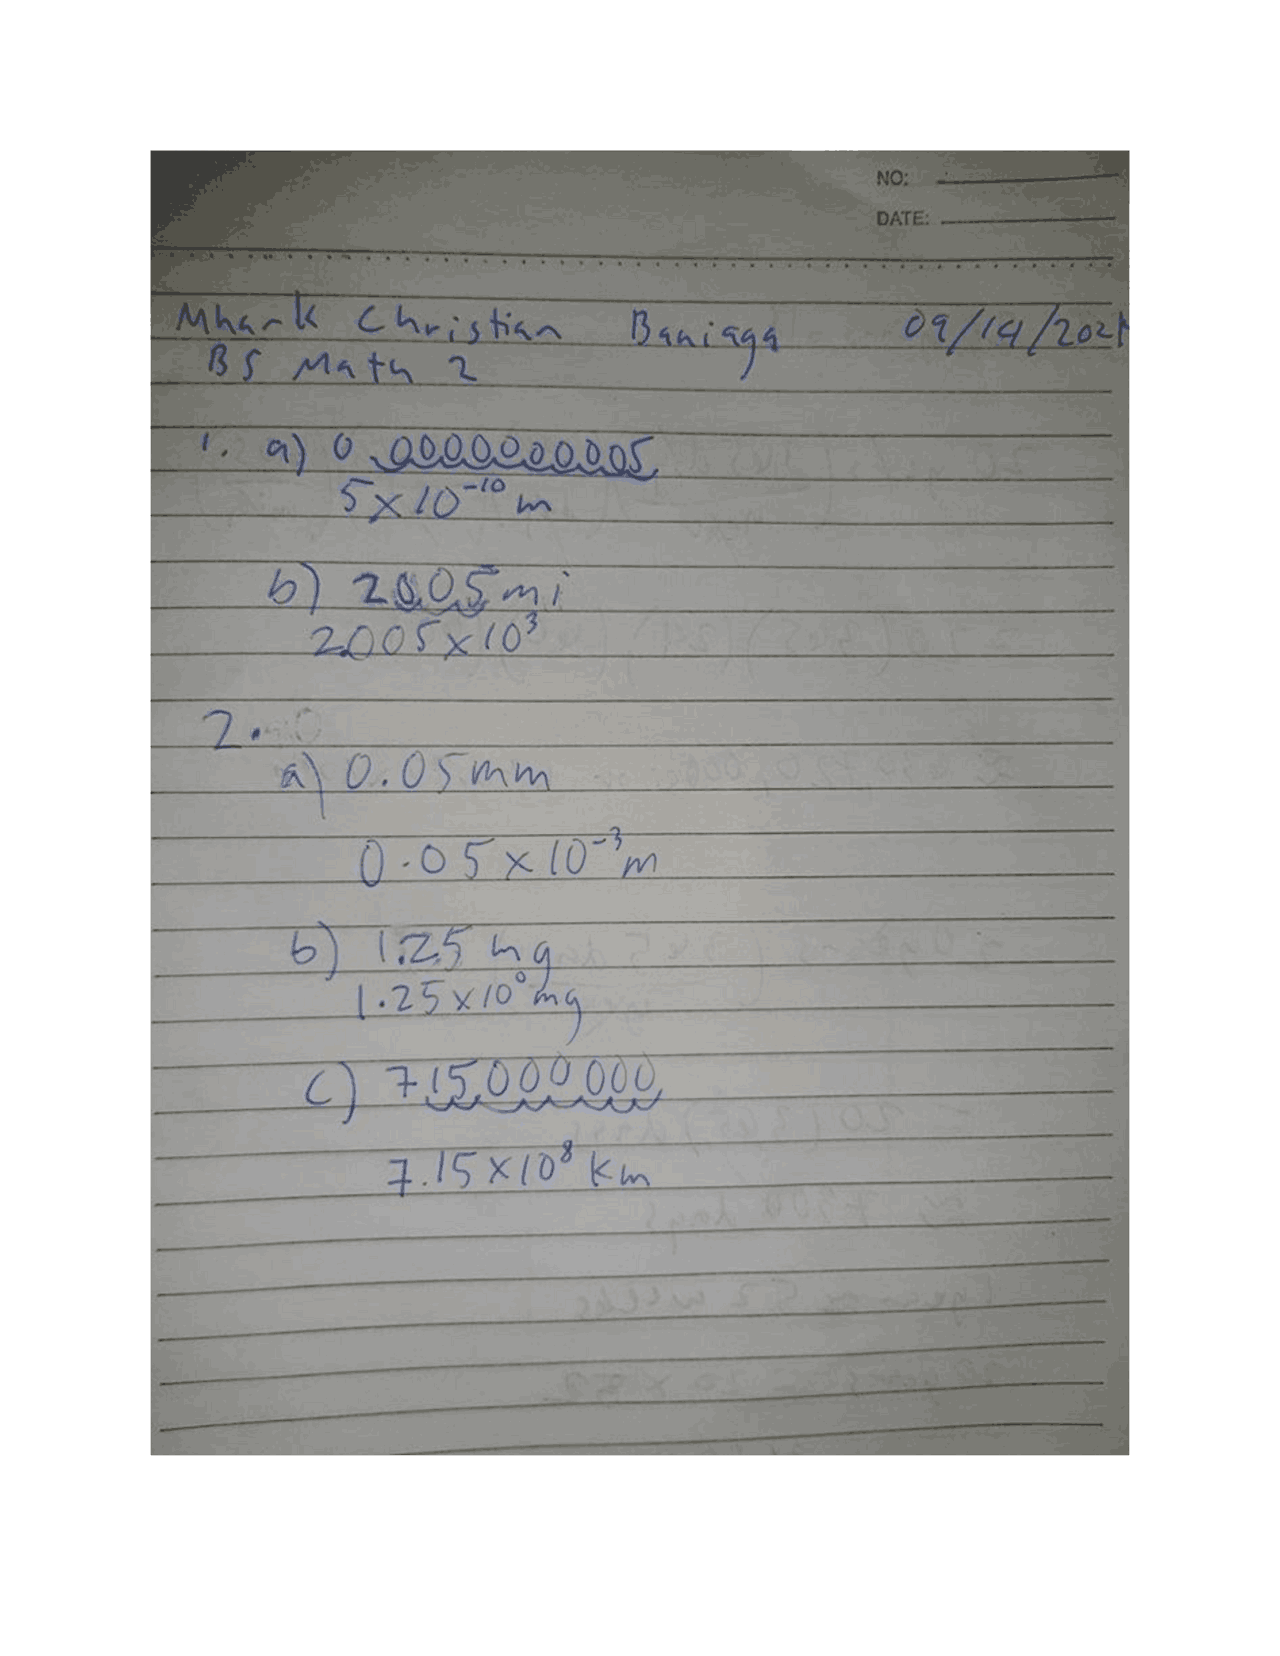 NO:
DATE:
Mhark Christian Baniaga 09/14/2021
BS Math 2
1. a) 0.0000000005
5x10⁻¹⁰ m
b) 2005mi
2.005x10³
2.
a) 0.05mm
0.05x10⁻³m
b) 1.25 mg
1.25x10⁰mg
c) 715,000,000
7.15x10⁸ km